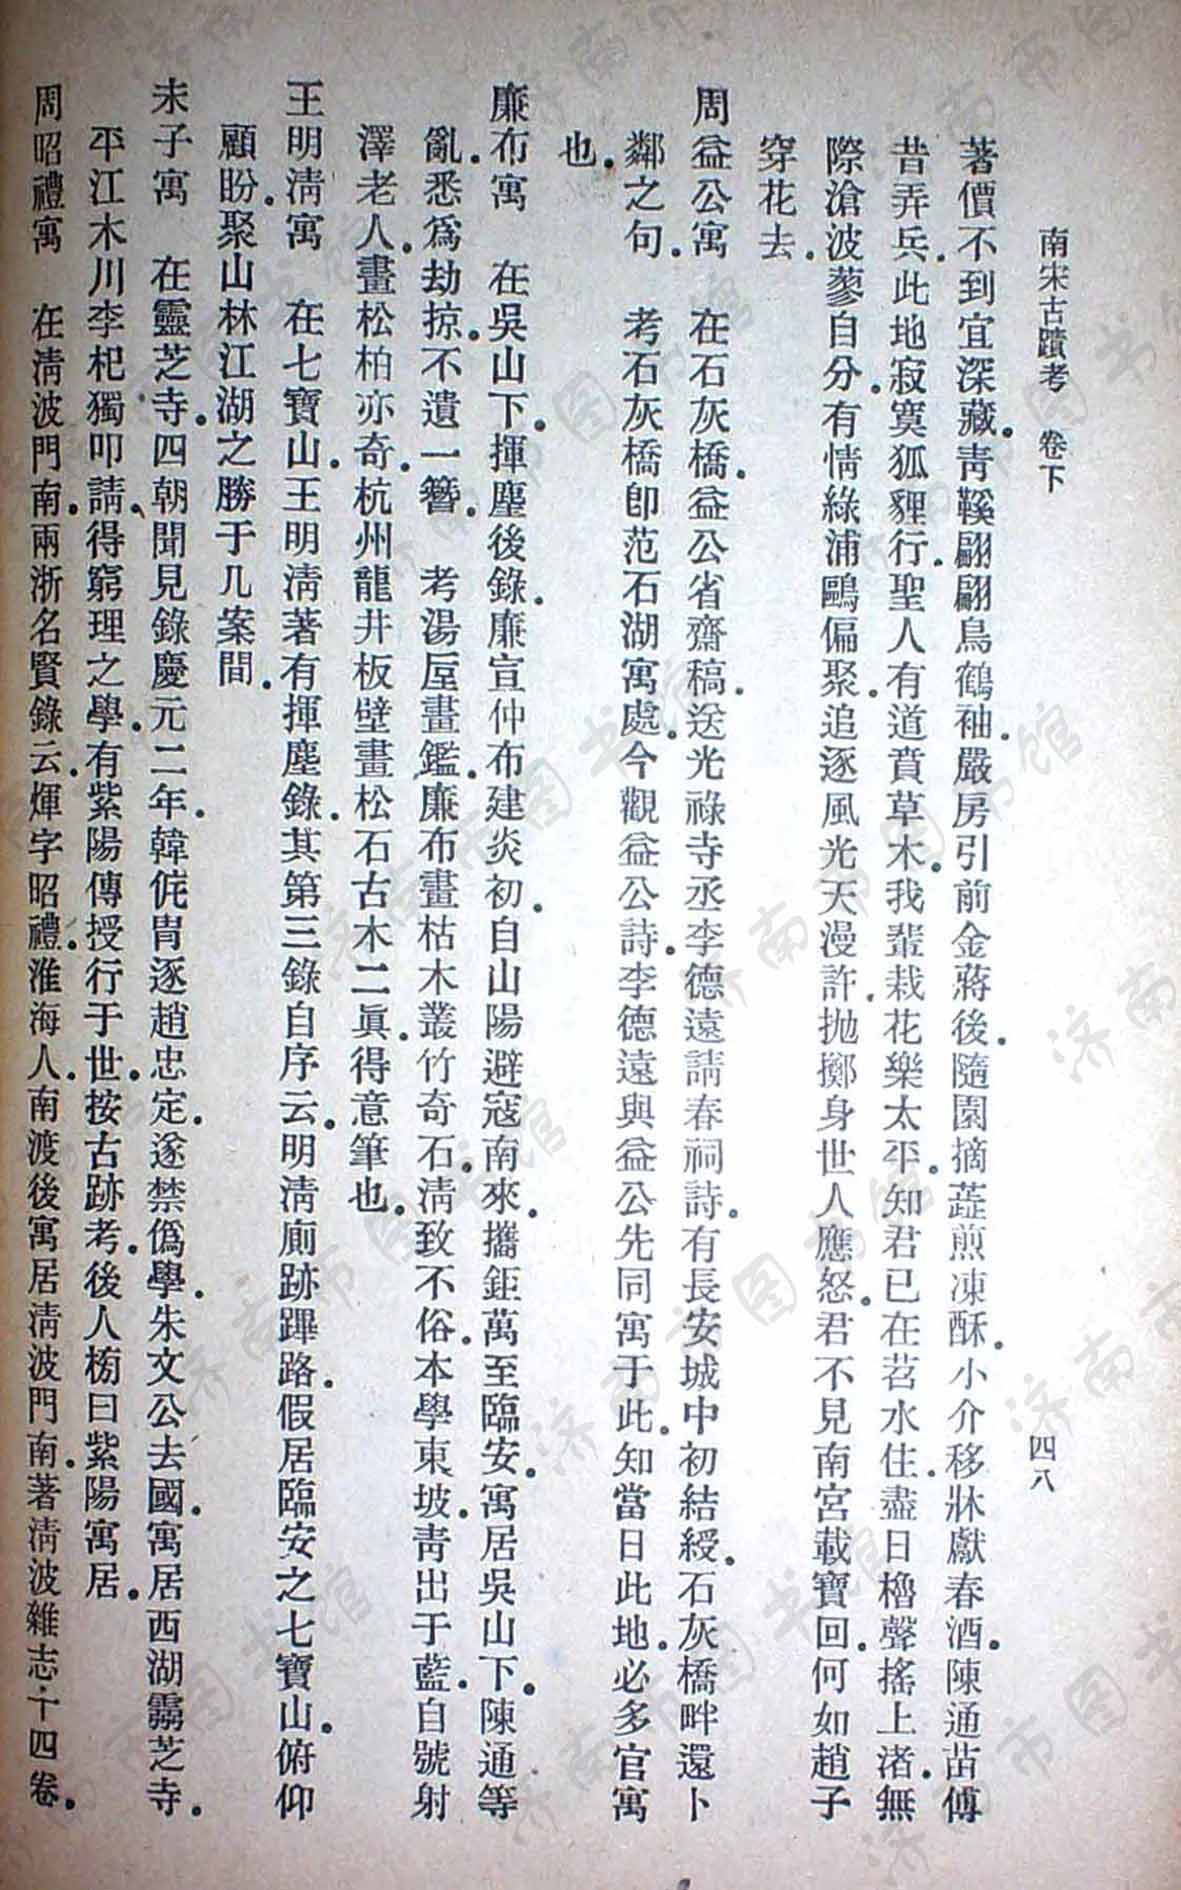 南宋古蹟考　卷下　四八
著價不到宜深藏。靑鞵翩翩烏鶴袖。嚴房引前金蔣後。隨園摘蔬煎凍酥。小介移牀獻春酒。陳通苗傅
昔弄兵。此地寂寞狐貍行。聖人有道賁草木。我輩栽花樂太平。知君已在苕水住。盡日櫓聲搖上渚。無
際滄波蓼自分。有情綠浦鷗偏聚。追逐風光天漫許。抛擲身世人應怒。君不見南宮載寶回。何如趙子
穿花去。
周益公寓　在石灰橋。益公省齋稿。送光祿寺丞李德遠請春祠詩。有長安城中初結綬。石灰橋畔還卜
鄰之句。　考石灰橋卽范石湖寓處。今觀益公詩。李德遠與益公先同寓于此。知當日此地。必多官寓
也。
廉布寓　在吳山下。揮塵後錄。廉宣仲布建炎初。自山陽避寇南來。攜鉅萬至臨安。寓居吳山下。陳通等
亂。悉爲劫掠。不遺一簪。　考湯垕畫鑑。廉布畫枯木叢竹奇石。淸致不俗。本學東坡。靑出于藍。自號射
澤老人。畫松柏亦奇。杭州龍井板壁畫松石古木二眞。得意筆也。
王明淸寓　在七寶山。王明淸著有揮塵錄。其第三錄自序云。明淸廁跡蹕路。假居臨安之七寶山。俯仰
顧盼。聚山林江湖之勝于几案間。
朱子寓　在靈芝寺。四朝聞見錄慶元二年。韓侂冑逐趙忠定。遂禁僞學。朱文公去國。寓居西湖靈芝寺。
平江木川李杞獨叩請。得窮理之學。有紫陽傳授行于世。按古跡考。後人榜曰紫陽寓居。
周昭禮寓　在淸波門南。兩浙名賢錄云。煇字昭禮。淮海人。南渡後寓居淸波門南。著淸波雜志。十四卷。